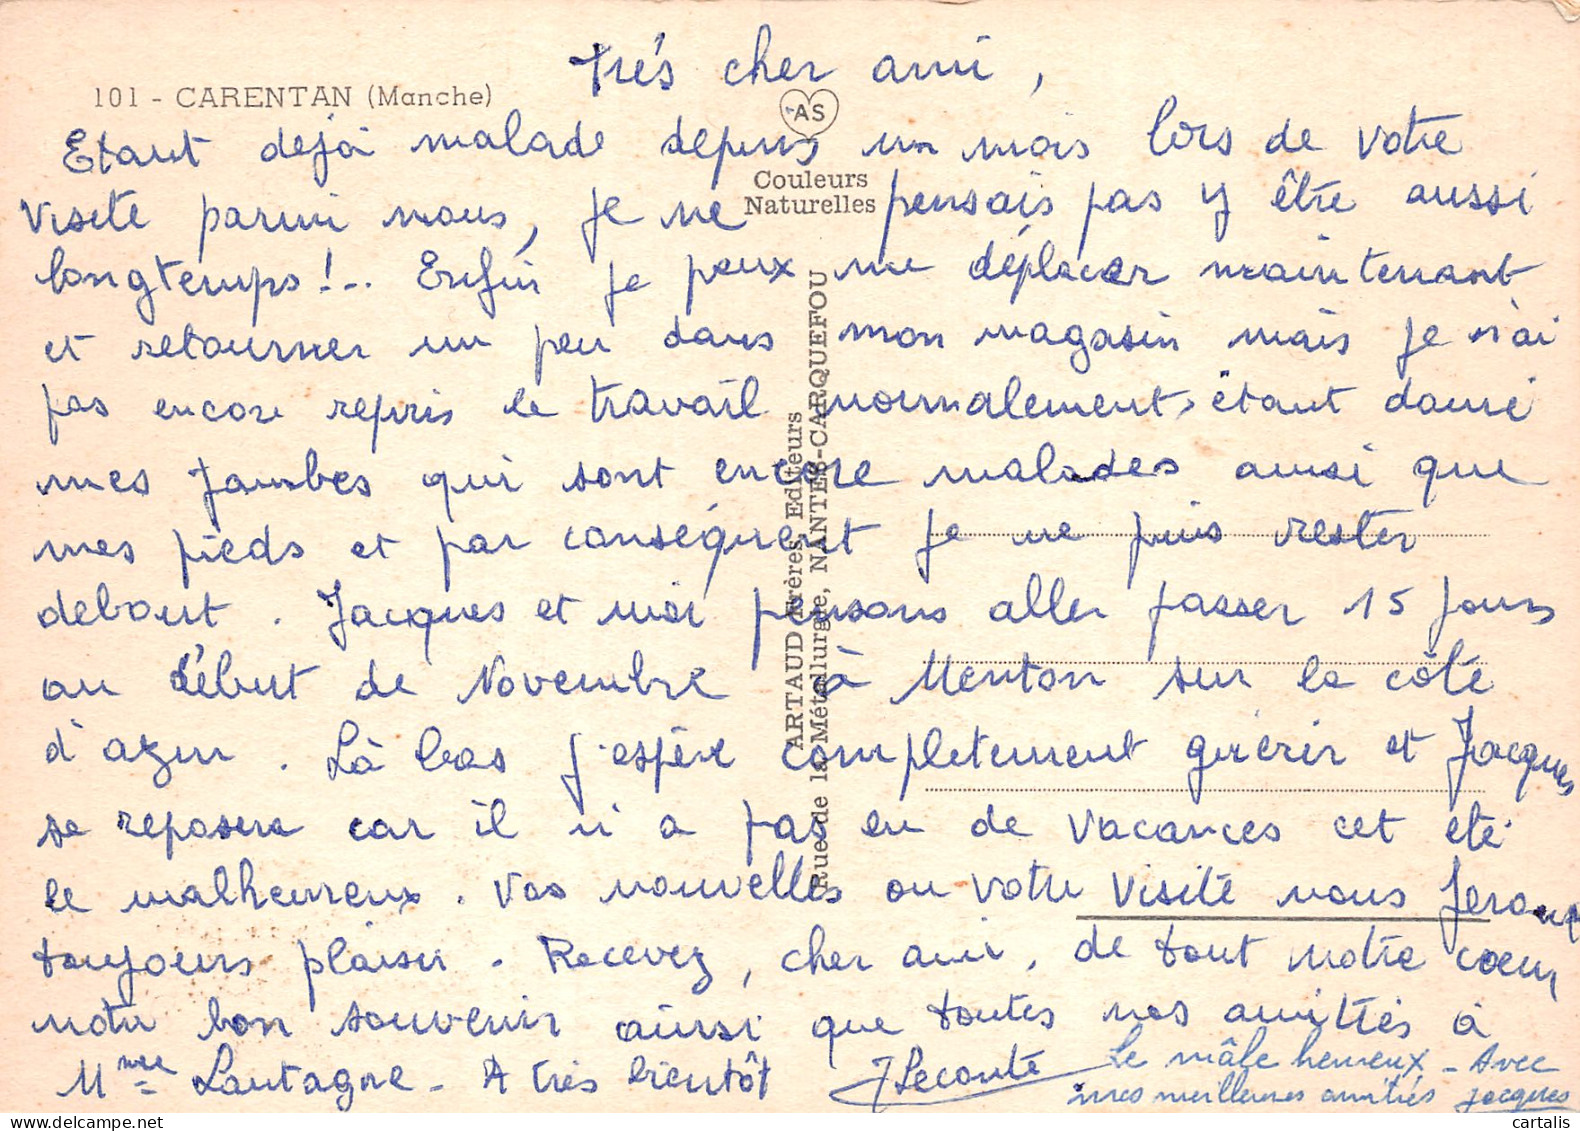 101 - CARENTAN (Manche)
Très cher ami,
AS
Couleurs
Naturelles
Etant dejà malade depuis un mois lors de votre
visite parmi nous, je ne pensais pas y être aussi
longtemps!... Enfin je peux me déplacer maintenant
et retourner un peu dans mon magasin mais je n'ai
pas encore repris le travail normalement, étant donné
mes jambes qui sont encore malades ainsi que
mes pieds et par conséquent je ne puis rester
debout. Jacques et moi pensons aller passer 15 jours
au début de Novembre à Menton sur la côte
d'azur. Là bas j'espère completement guérir et Jacques
se reposera car il n'a pas eu de vacances cet été
le malheureux. Vos nouvelles ou votre visite nous feront
toujours plaisir. Recevez, cher ami, de tout notre coeur,
notre bon souvenir ainsi que toutes nos amitiés à
Mme Lautagne - A très bientôt JLeconte
Le mâle heureux - Avec
mes meilleures amitiés Jacques
ARTAUD Frères, Editeurs
Rue de la Métallurgie, NANTES-CARQUEFOU
cartalis